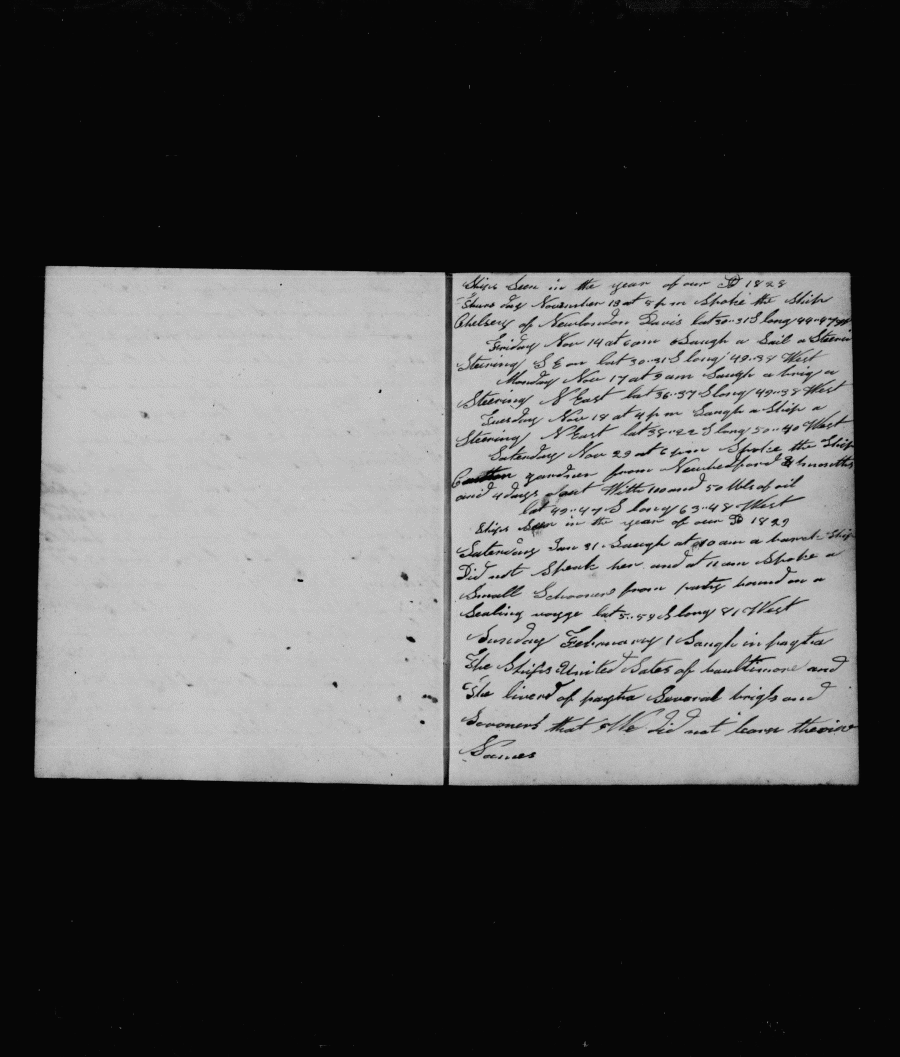 Ships Seen in the year of our D 1828
Thursday November 13 at 5 pm Spoke the Ship
Chelsey of Newlondon Davis lat 30..31 S long 49..47 W
Friday Nov 14 at 6 Saugh a Sail a Steern
Steering S E on lat 30..31 S long 49..38 West
Monday Nov 17 at 9 am Saugh a brig a
Steering N East lat 36..37 S long 49..38 West
Tuesday Nov 18 at 4 pm Saugh a Ship a
Steering N East lat 38..22 S long 50..40 West
Saturday Nov 29 at 6 pm Spoke the Ship
gardner from Newbedford 4 months
and 4 days out With 100 and 50 bbls of oil
lat 49..47 S long 63..48 West
Ships Seen in the year of our D 1829
Saterday Jan 31 Saugh at 10 am a barck Ship
Did not Speak her and at 11 am Spoke a
Small Schooner from bound on a
Sealing voyge lat 5..54 S long 81 West
Sunday February 1 Saugh in paytia
The Ships United Sates of baultimore and
The of paytia Several brigs and
Scooners that We did not learn
Names